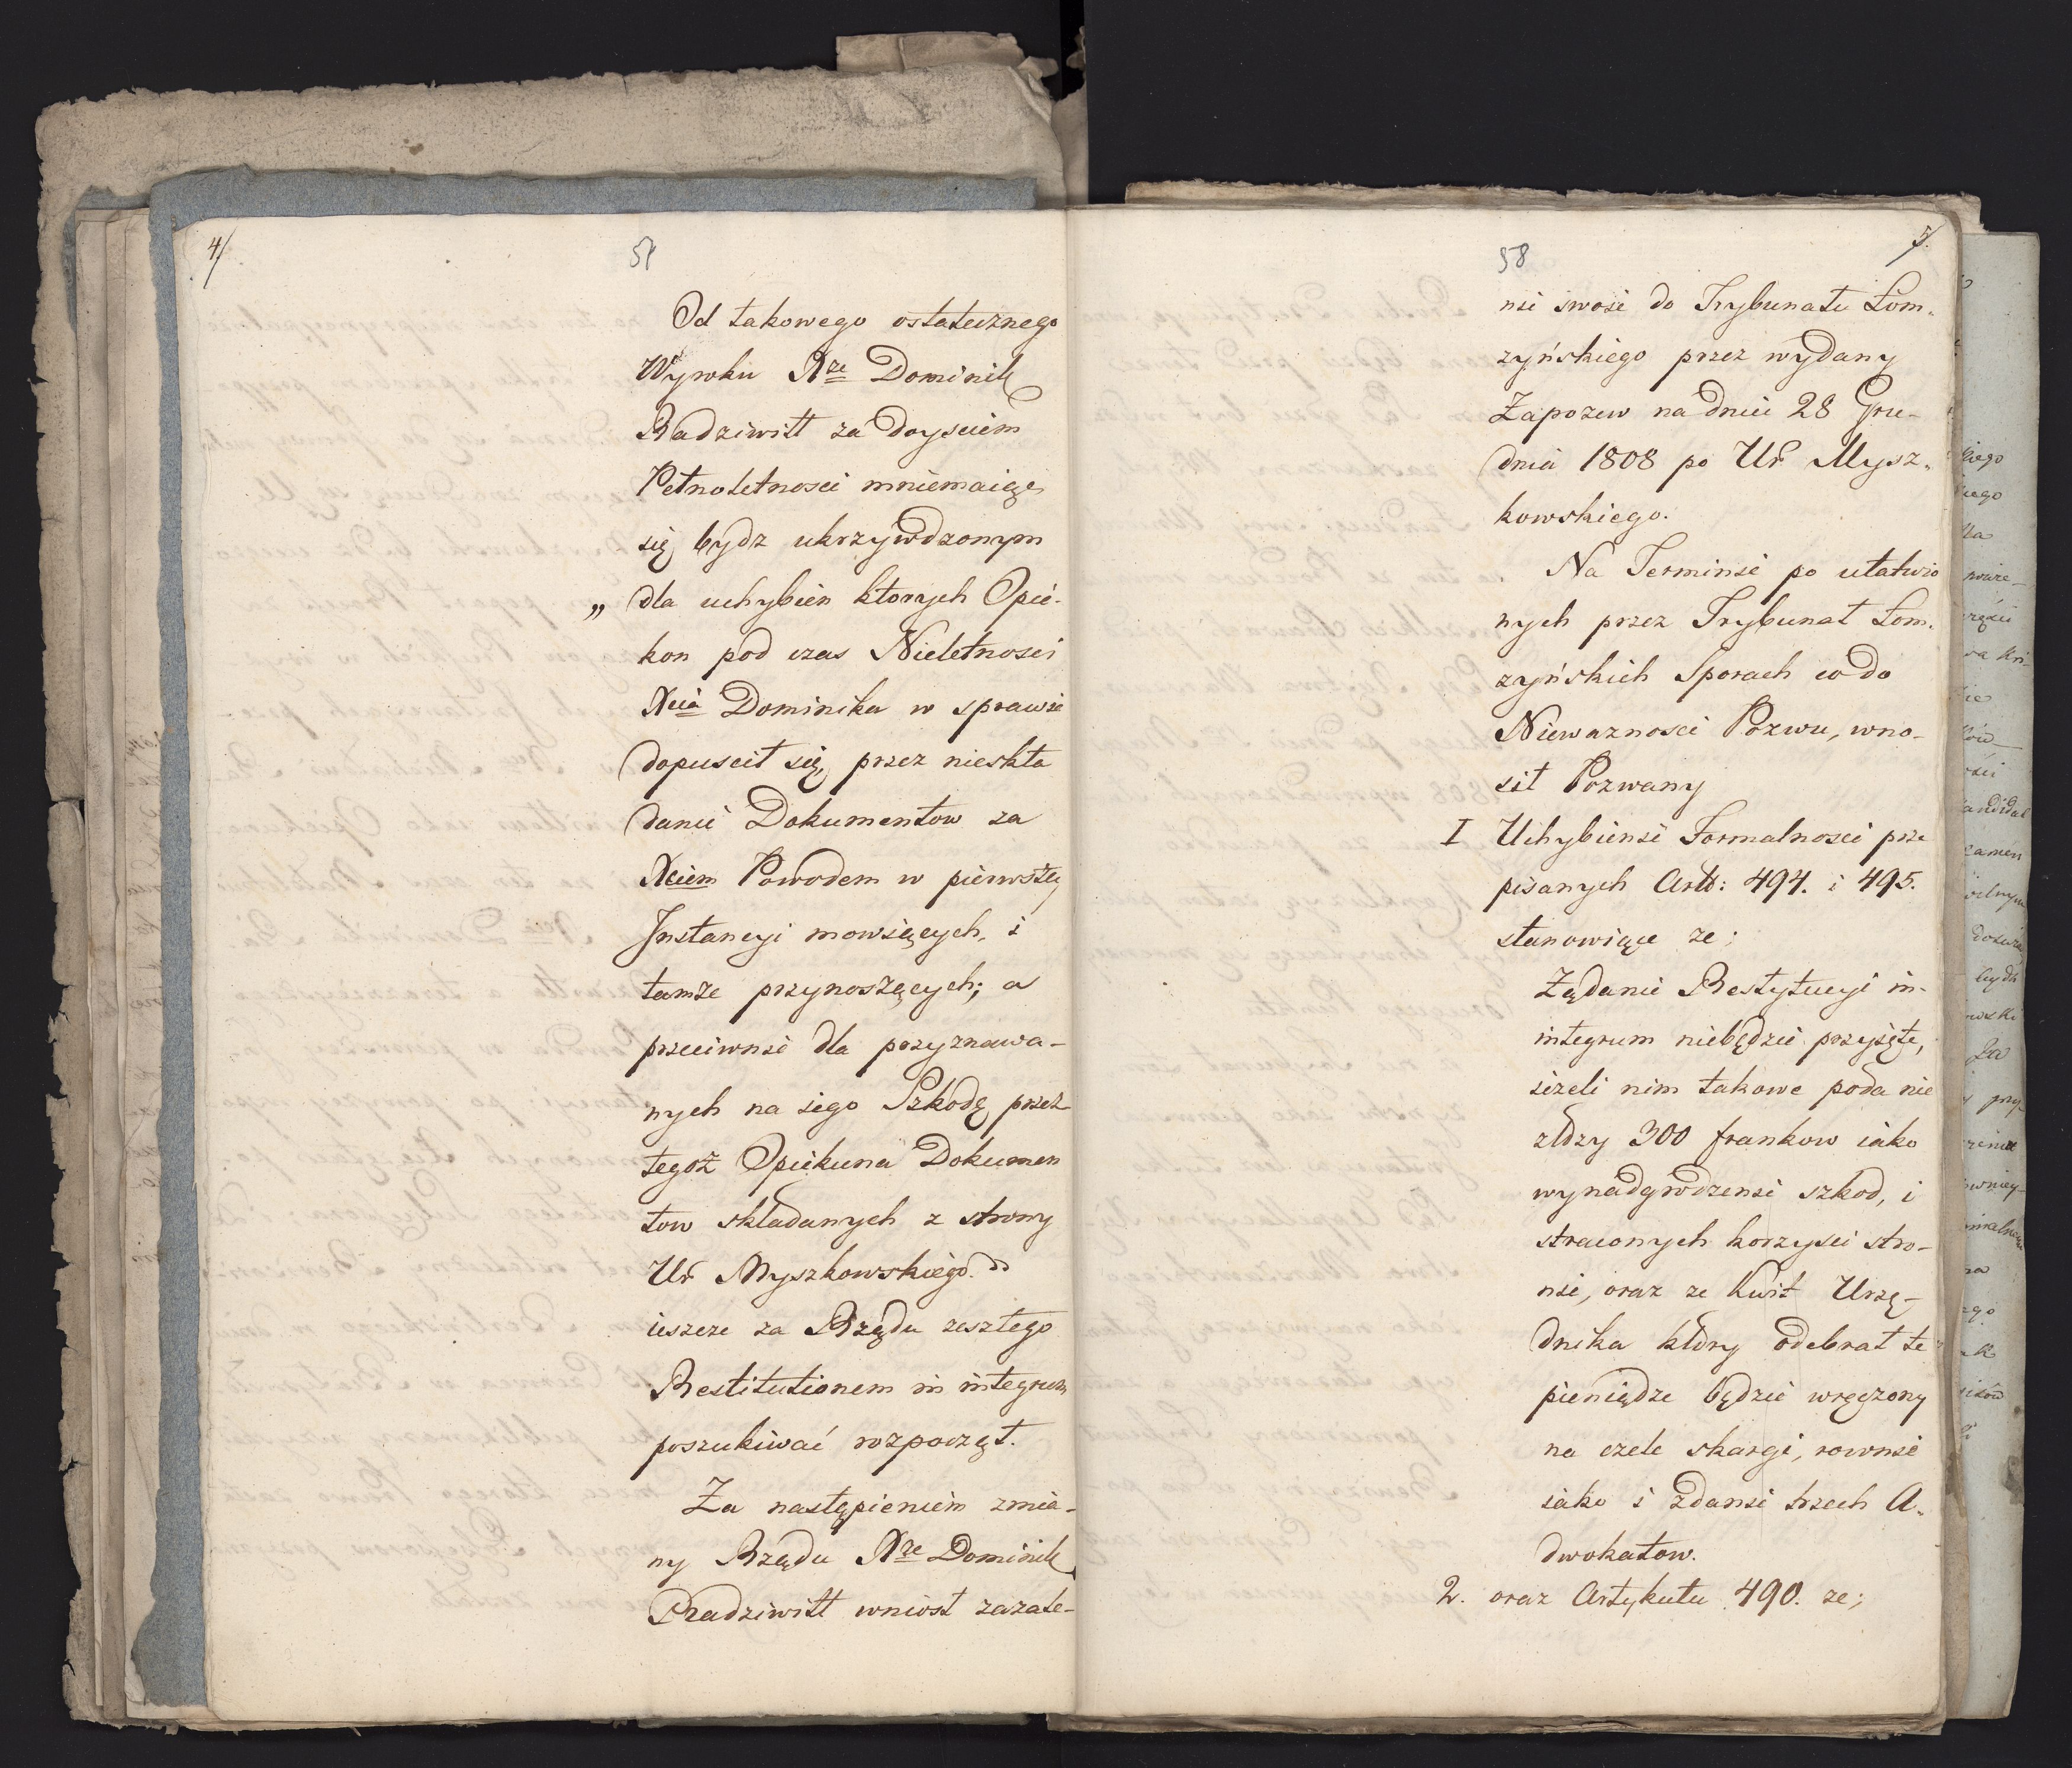 4/
57
Od takowego ostatecznego
Wyroku Xze Dominik
Radziwiłł za doyściem
Pełnoletnosci mniemaiąc
się bydz ukrzywdzonym
„ dla uchybien ktorych Opie-
kon pod czas Nieletnosci
Xcia Dominika w sprawie
dopuscił się, przez nieskła
danie Dokumentow za
Xciem Powodem w pierwszey
Instancyi mowiących, i
tamże przynoszących; a
przeciwnie dla przyznawa-
nych na iego Szkodę przez
tegoż Opiekuna Dokumen
tow składanych z strony
Ur Myszkowskiego.
ieszcze za Rządu zeszłego
Restitutionem in integrum
poszukiwać rozpoczął.
Za nastąpieniem zmia-
ny Rządu Xze Dominik
Radziwiłł wniosł zazale-
58
5/
nie swoie do Trybunału Łom-
zyńskiego przez wydany
Zapozew na dniu 28 Gru-
dnia 1808 po Ur Mysz-
kowskiego.
Na Terminie po ułatwio
nych przez Trybunał Łom-
zyńskich Sporach co do
Niewaznosci Pozwu, wno-
sił Pozwany
I Uchybienie Formalnosci prze
pisanych Artt: 494. i 495.
stanowiące ze;
Żądanie Restytucyi in-
integrum niebędzie przyięte,
ieżeli nim takowe poda nie
złoży 300 frankow iako
wynadgrodzenie szkod, i
straconych korzysci stro-
nie, oraz ze kwit Urzę-
dnika ktory odebrał te
pieniądze będzie wręczony
na czele skargi, rownie
iako i zdanie trzech A-
dwokatow.
2. oraz Artykułu 490. ze;